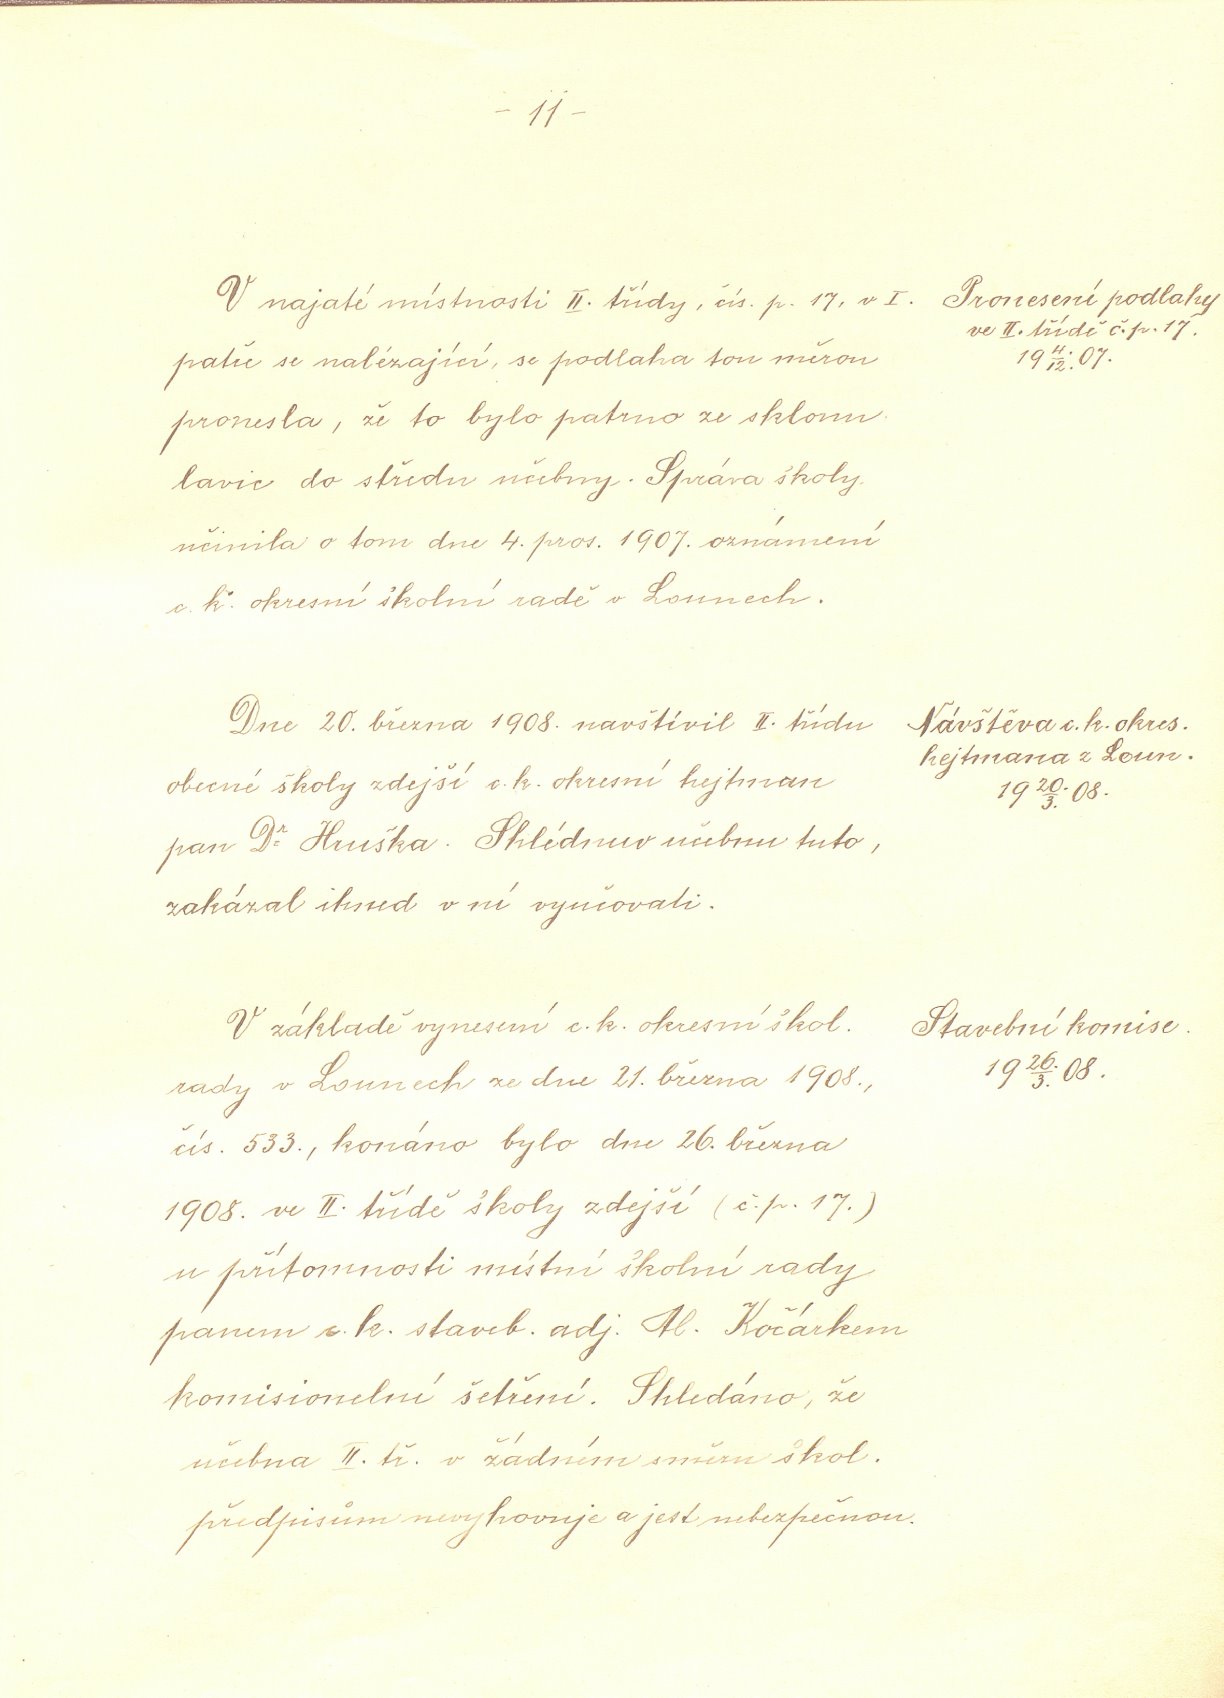 - 11 -
V najaté místnosti II. třídy, čís. p. 17, v I.
patře se nalézající, se podlaha tou měrou
pronesla, že to bylo patrno ze sklonu
lavic do středu učebny. Správa školy
učinila o tom dne 4. pros. 1907. oznámení
c. k. okresní školní radě v Lounech.
Pronesení podlahy
ve II. třídě č. p. 17.
19 4./12. 07.
Dne 20. března 1908. navštívil II. třídu
obecné školy zdejší c. k. okresní hejtman
pan Dr. Hruška. Shlédnuv učebnu tuto,
zakázal ihned v ní vyučovati.
Návštěva c. k. okres.
hejtmana z Loun.
19 20./3. 08.
V základě vynesení c. k. okresní škol.
rady v Lounech ze dne 21. března 1908.,
čís. 533., konáno bylo dne 26. března
1908. ve II. třídě školy zdejší (č. p. 17.)
u přítomnosti místní školní rady
panem c. k. staveb. adj. Al. Kočárkem
komisionelní šetření. Shledáno, že
učebna II. tř. v žádném směru škol.
předpisům nevyhovuje a jest nebezpečnou.
Stavební komise.
19 26./3. 08.